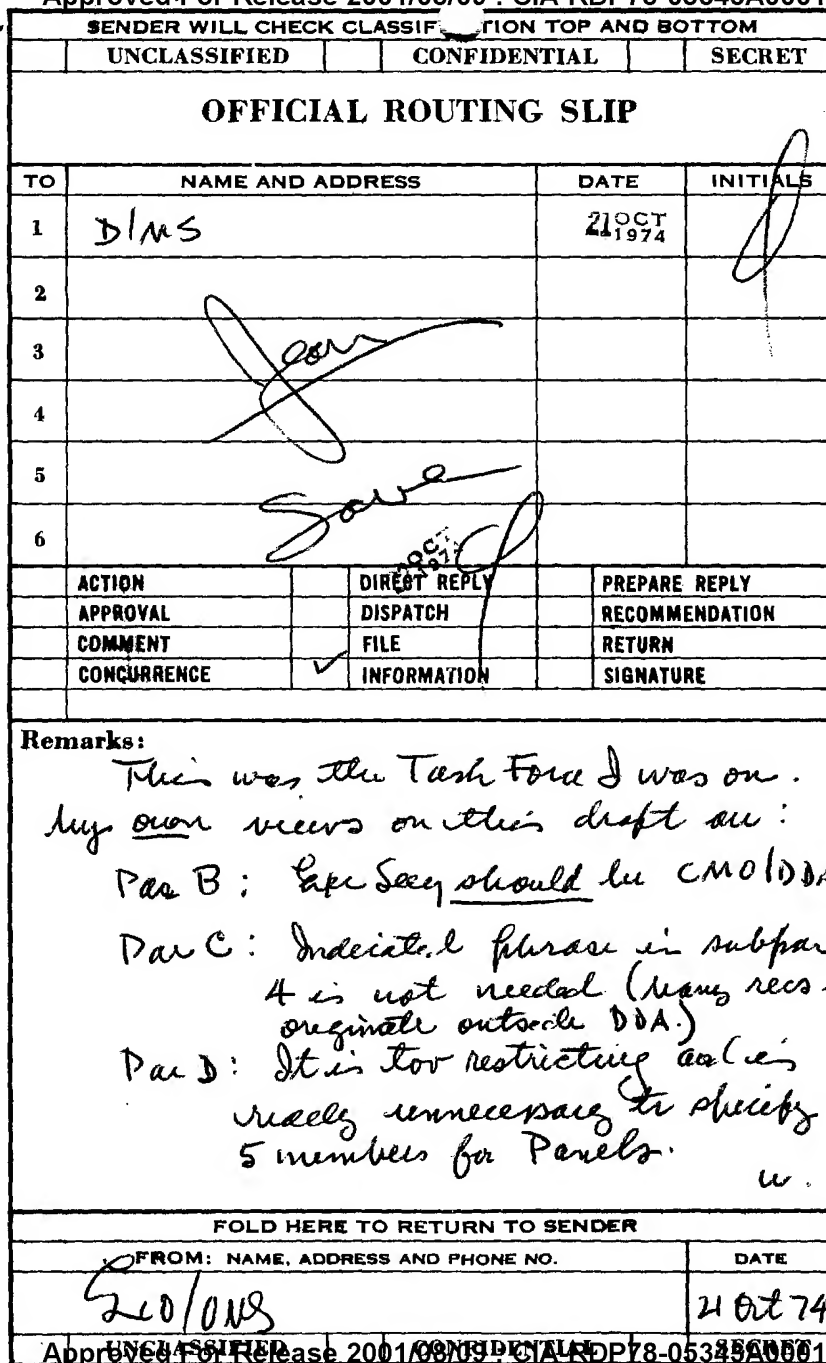 Approved For Release 2001/08/09 : CIA-RDP78-05343A0001
SENDER WILL CHECK CLASSIFICATION TOP AND BOTTOM
UNCLASSIFIED CONFIDENTIAL SECRET
OFFICIAL ROUTING SLIP
TO NAME AND ADDRESS DATE INITIALS
1 D/MS 21 OCT 1974
2
3 Jean
4
5 Save
6
OCT
ACTION DIRECT REPLY PREPARE REPLY
APPROVAL DISPATCH RECOMMENDATION
COMMENT FILE RETURN
CONCURRENCE ✓ INFORMATION SIGNATURE
Remarks:
This was the Task Force I was on.
My own views on this draft are:
Par B: Exec Secy should be CMO/DDA
Par C: Indicated phrase in subpar
4 is not needed (many recs
originate outside DDA.)
Par D: It is too restricting and is
really unnecessary to specify
5 members for Panels.
w.
FOLD HERE TO RETURN TO SENDER
FROM: NAME, ADDRESS AND PHONE NO. DATE
21 Oct 74
UNCLASSIFIED CONFIDENTIAL SECRET
Approved For Release 2001/08/09 : CIA-RDP78-05343A0001